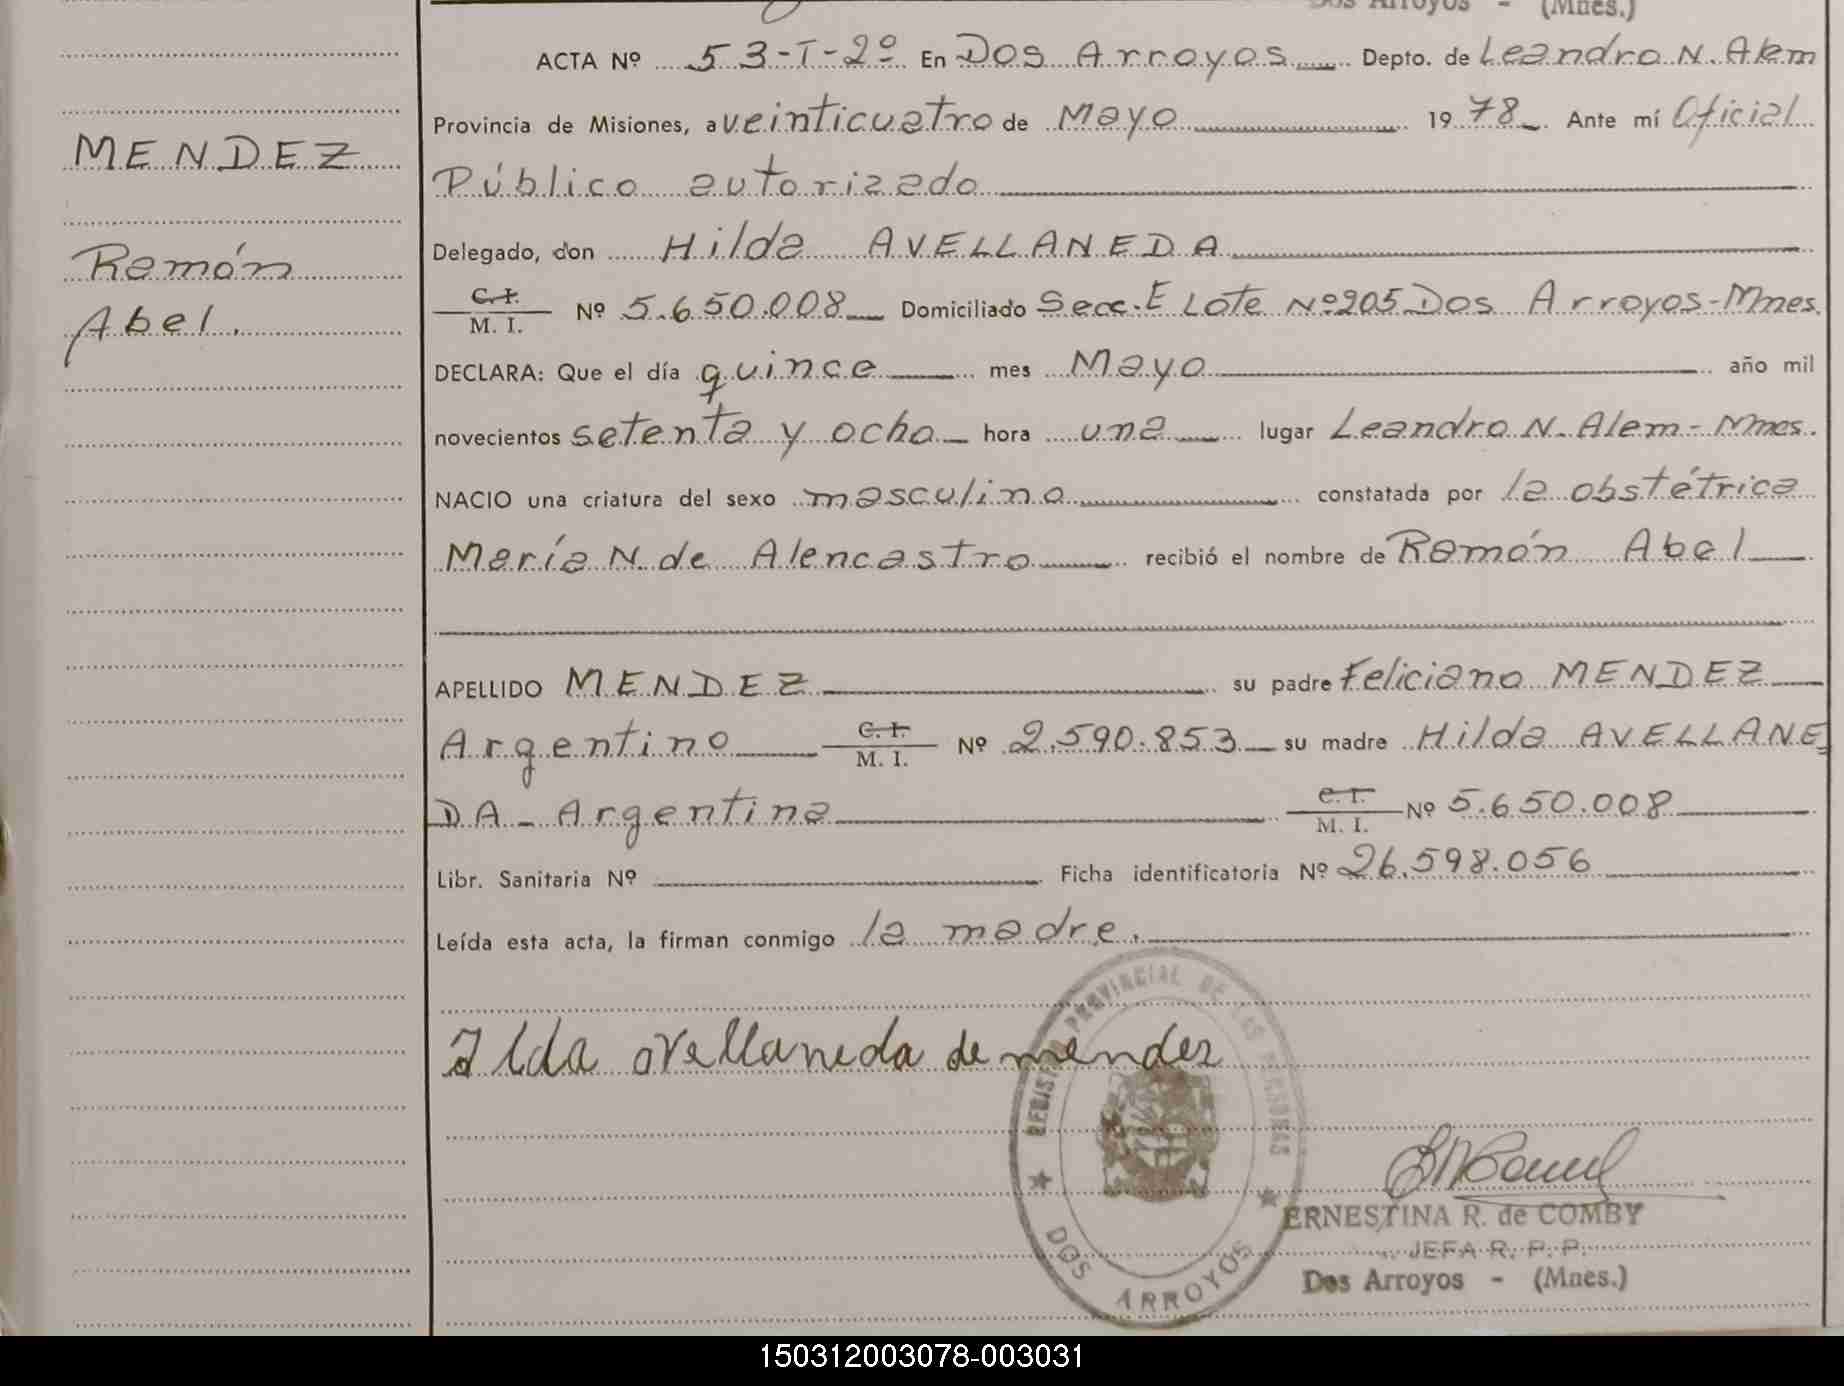 Dos Arroyos - (Mnes.)
ACTA Nº 53-T-2º En Dos Arroyos Depto. de Leandro N. Alem
Provincia de Misiones, a veinticuatro de Mayo 1978 Ante mí Oficial
Público autorizado
Delegado, don Hilda AVELLANEDA
C.I. M. I. Nº 5.650.008 Domiciliado Secc. E Lote Nº 205 Dos Arroyos-Mnes.
DECLARA: Que el día quince mes Mayo año mil
novecientos setenta y ocho hora una lugar Leandro N. Alem - Mnes.
NACIO una criatura del sexo masculino constatada por la obstétrica
María N. de Alencastro recibió el nombre de Ramón Abel
APELLIDO MENDEZ su padre Feliciano MENDEZ
Argentino C.I. M. I. Nº 2.590.853 su madre Hilda AVELLANE=
DA - Argentina C.I. M. I. Nº 5.650.008
Libr. Sanitaria Nº Ficha identificatoria Nº 26.598.056
Leída esta acta, la firman conmigo la madre.
Ilda avellaneda de mendez
MENDEZ
Ramón
Abel.
REGISTRO PROVINCIAL DE LAS PERSONAS
DOS ARROYOS
ERNESTINA R. de COMBY
JEFA R. P. P.
Dos Arroyos - (Mnes.)
150312003078-003031